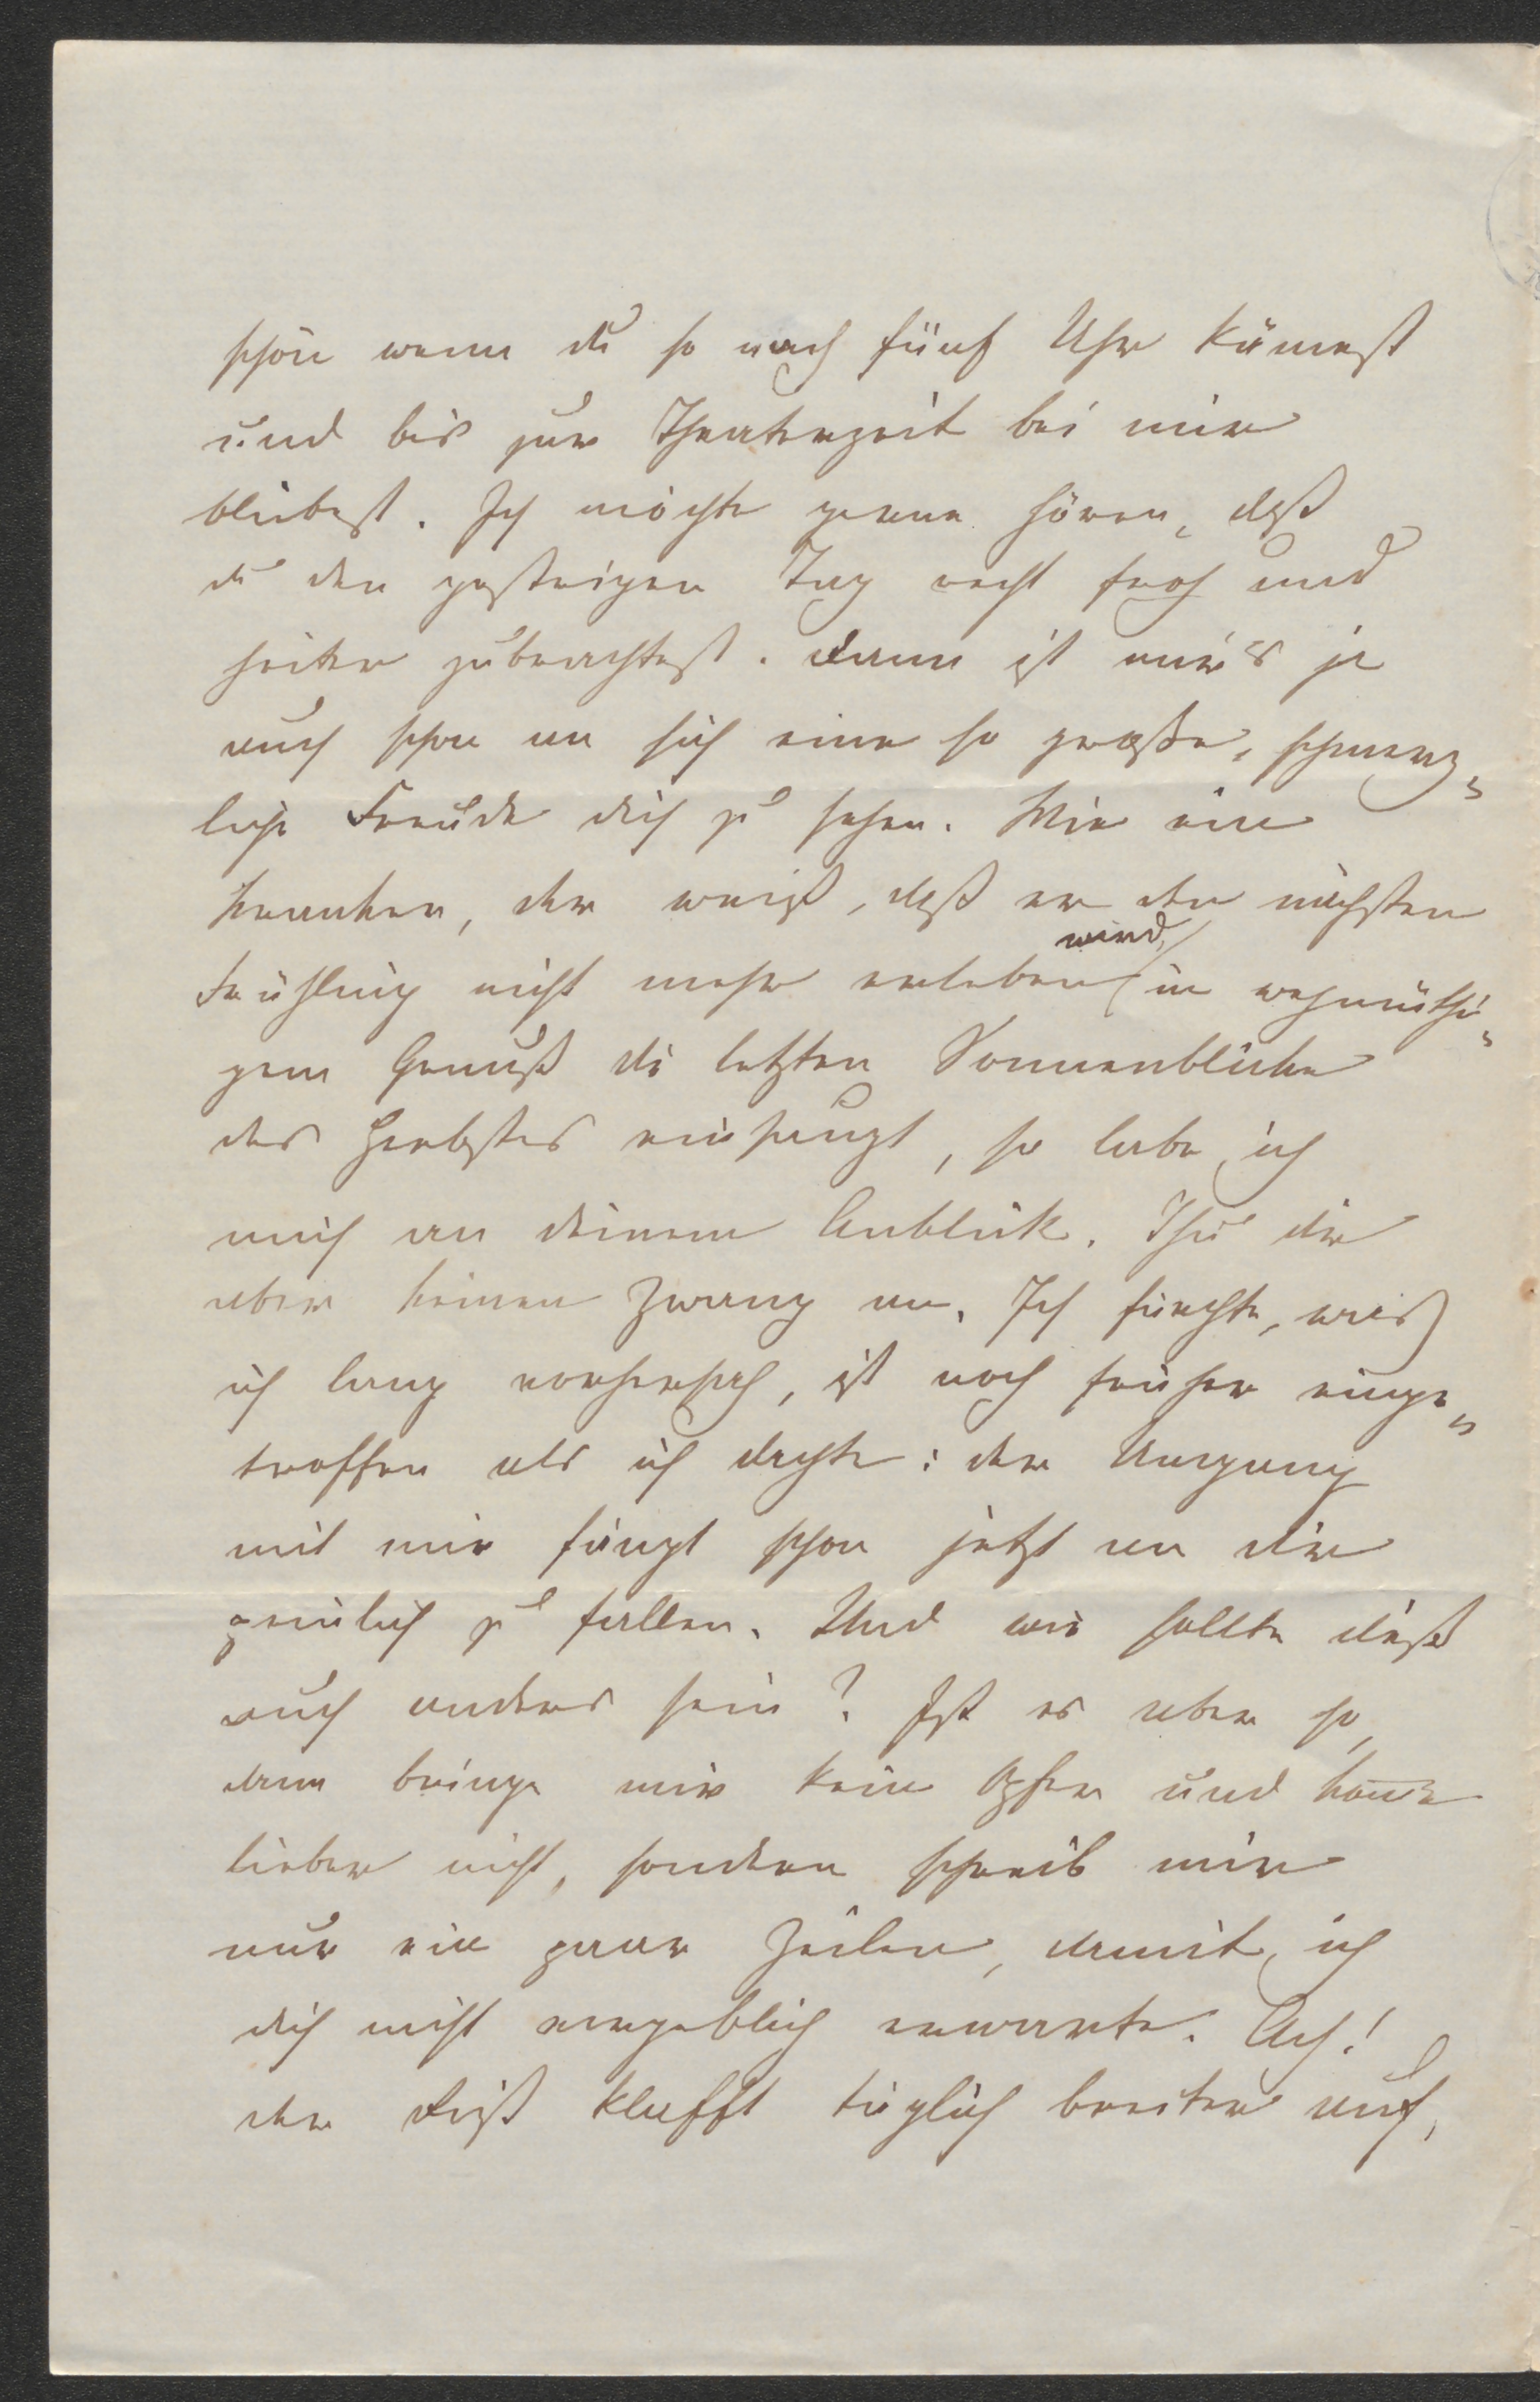 schön wenn du so nach fünf Uhr kämest
und bis zur Theaterzeit bei mir
bliebest. Ich möchte gerne hören, daß
du den gestrigen Tag recht froh und
heiter zubrachtest. Dann ist mir's ja
auch schon an sich eine so große, schmerz-
liche Freude dich zu sehen. Wie ein
Kranker, der weiß, daß er den nächsten
Frühling nicht mehr erleben wird, in wehmüthi-
gem Genuß die letzten Sonnenblicke
des Herbstes einsaugt, so labe ich
mich an deinem Anblick. Thu dir
aber keinen Zwang an. Ich fürchte, was
ich lang vorhersah, ist noch früher einge-
troffen als ich dachte: der Umgang
mit mir fängt schon jetzt an dir
peinlich zu fallen. Und wie sollte dieß
auch anders sein? Ist es aber so,
dann bringe mir kein Opfer und komme
lieber nicht, sondern schreib mir
nur ein paar Zeilen, damit ich
dich nicht vergeblich erwarte. Ach!
der Riß klafft täglich breiter auf,